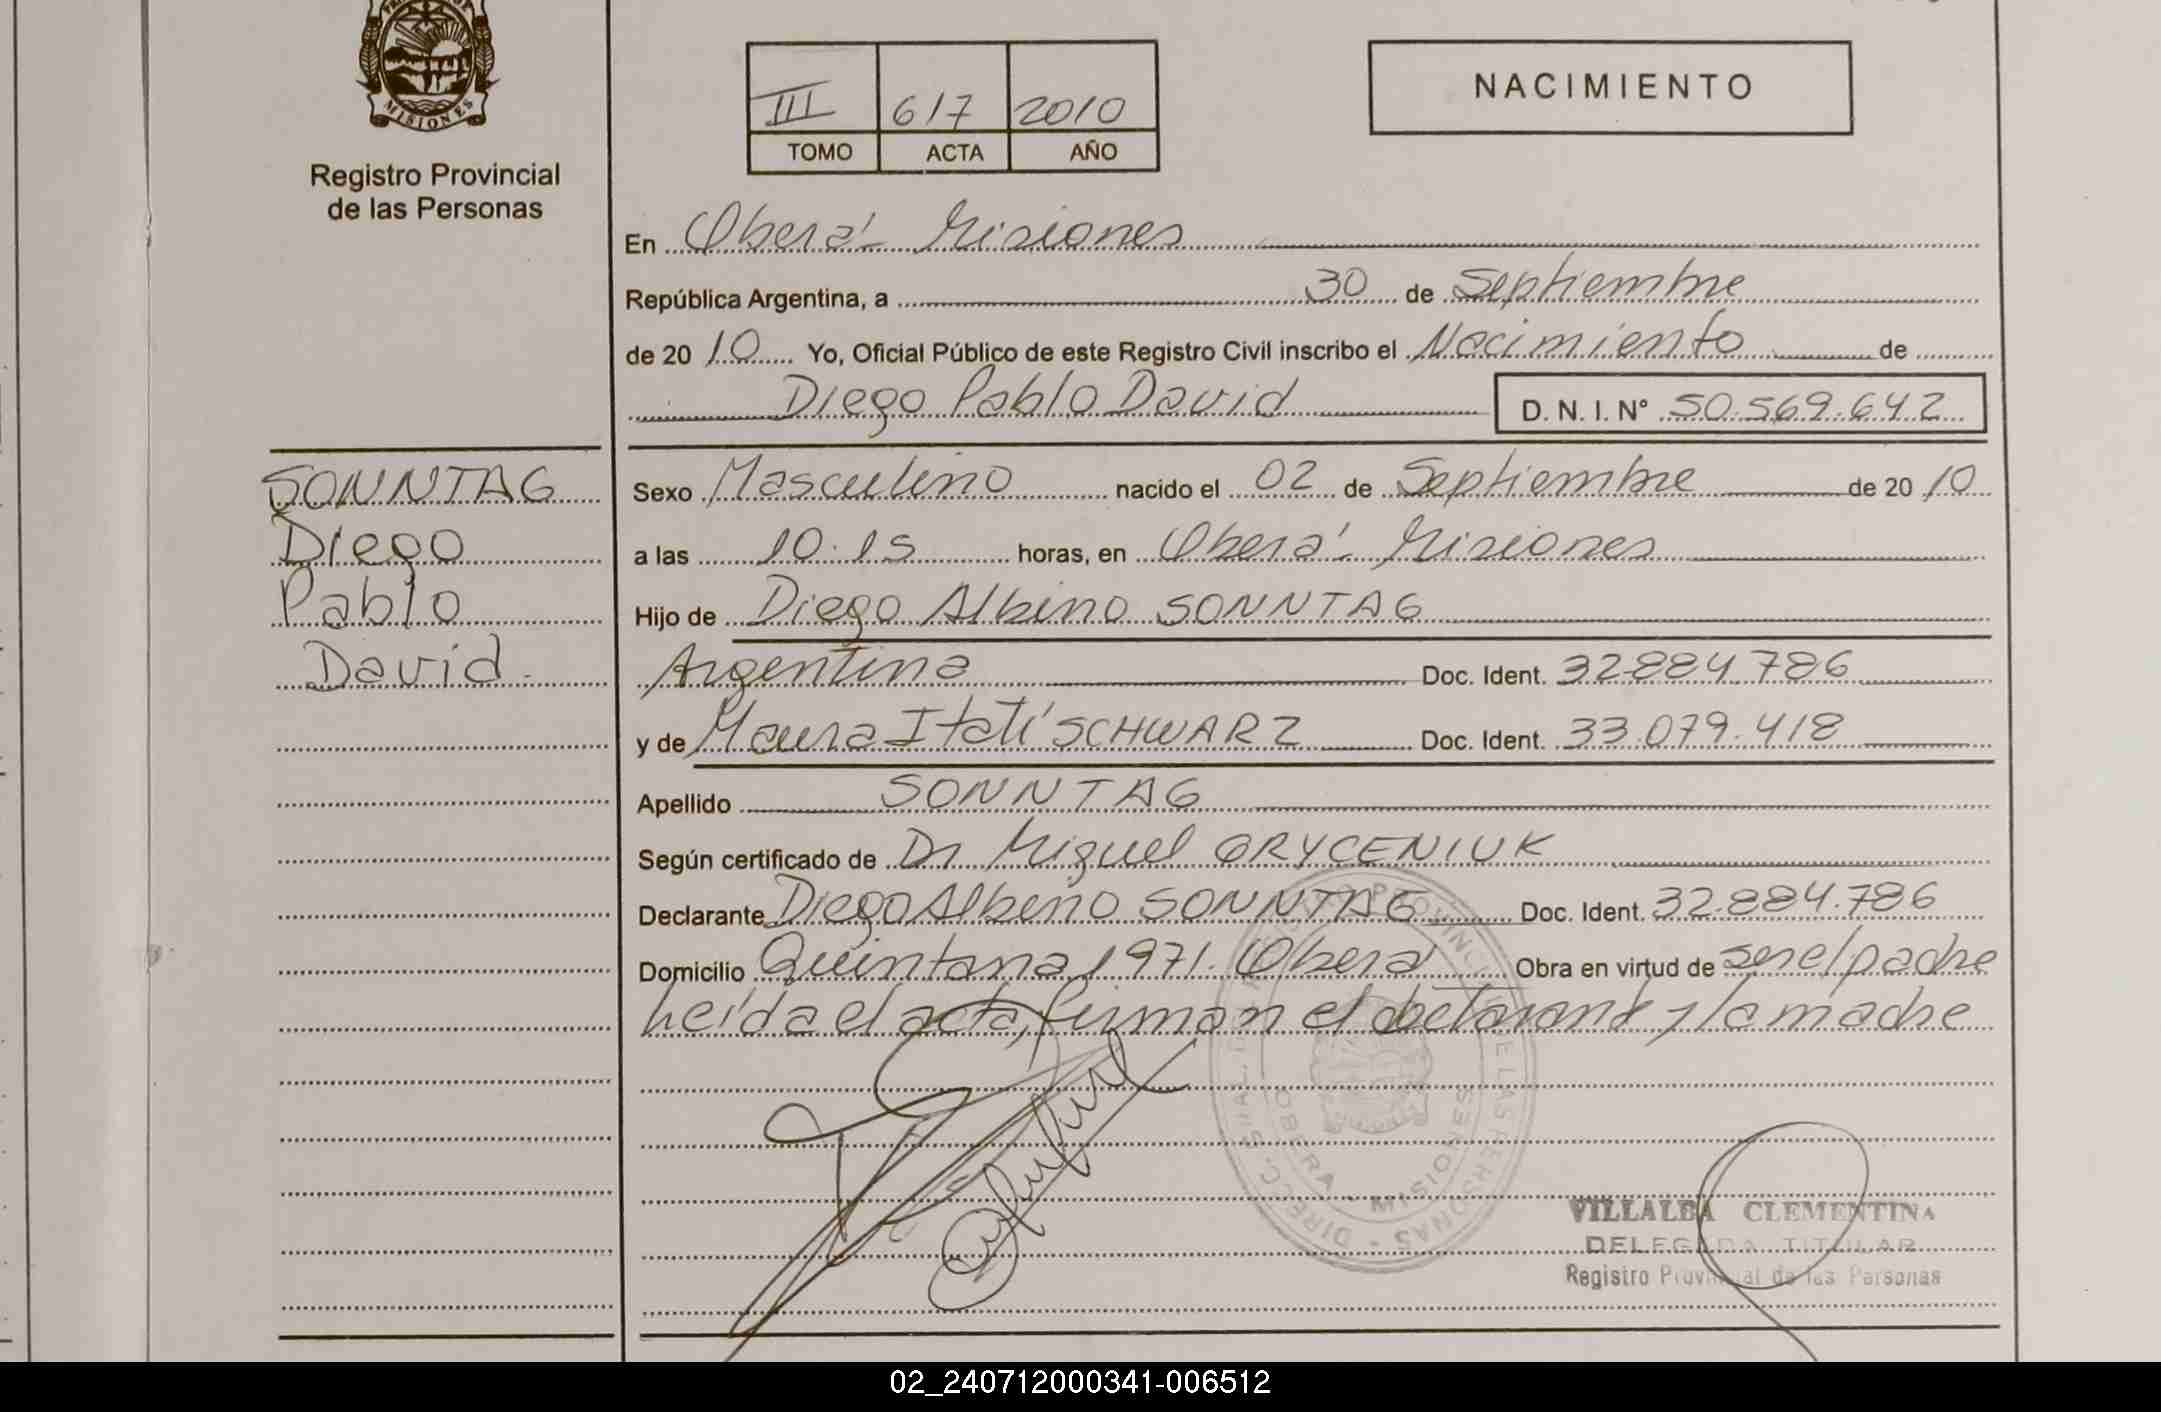 MISIONES
Registro Provincial
de las Personas
III 617 2010
TOMO ACTA AÑO
NACIMIENTO
En Oberá - Misiones
República Argentina, a 30 de Septiembre
de 20 10 Yo, Oficial Público de este Registro Civil inscribo el Nacimiento de
Diego Pablo David D. N. I. N° 50.569.642
SONNTAG
Diego
Pablo
David.
Sexo Masculino nacido el 02 de Septiembre de 20 10
a las 10.15 horas, en Oberá - Misiones
Hijo de Diego Albino SONNTAG
Argentina Doc. Ident. 32.884.786
y de Maura Itatí SCHWARZ Doc. Ident. 33.079.418
Apellido SONNTAG
Según certificado de Dr Miguel GRYCENIUK
Declarante Diego Albino SONNTAG Doc. Ident. 32.884.786
Domicilio Quintana 1971. Oberá Obra en virtud de ser el padre
Leída el acta, firman el declarante y la madre
OBERA - MISIONES
VILLALBA CLEMENTINA
DELEGADA TITULAR
Registro Provincial de las Personas
02_240712000341-006512